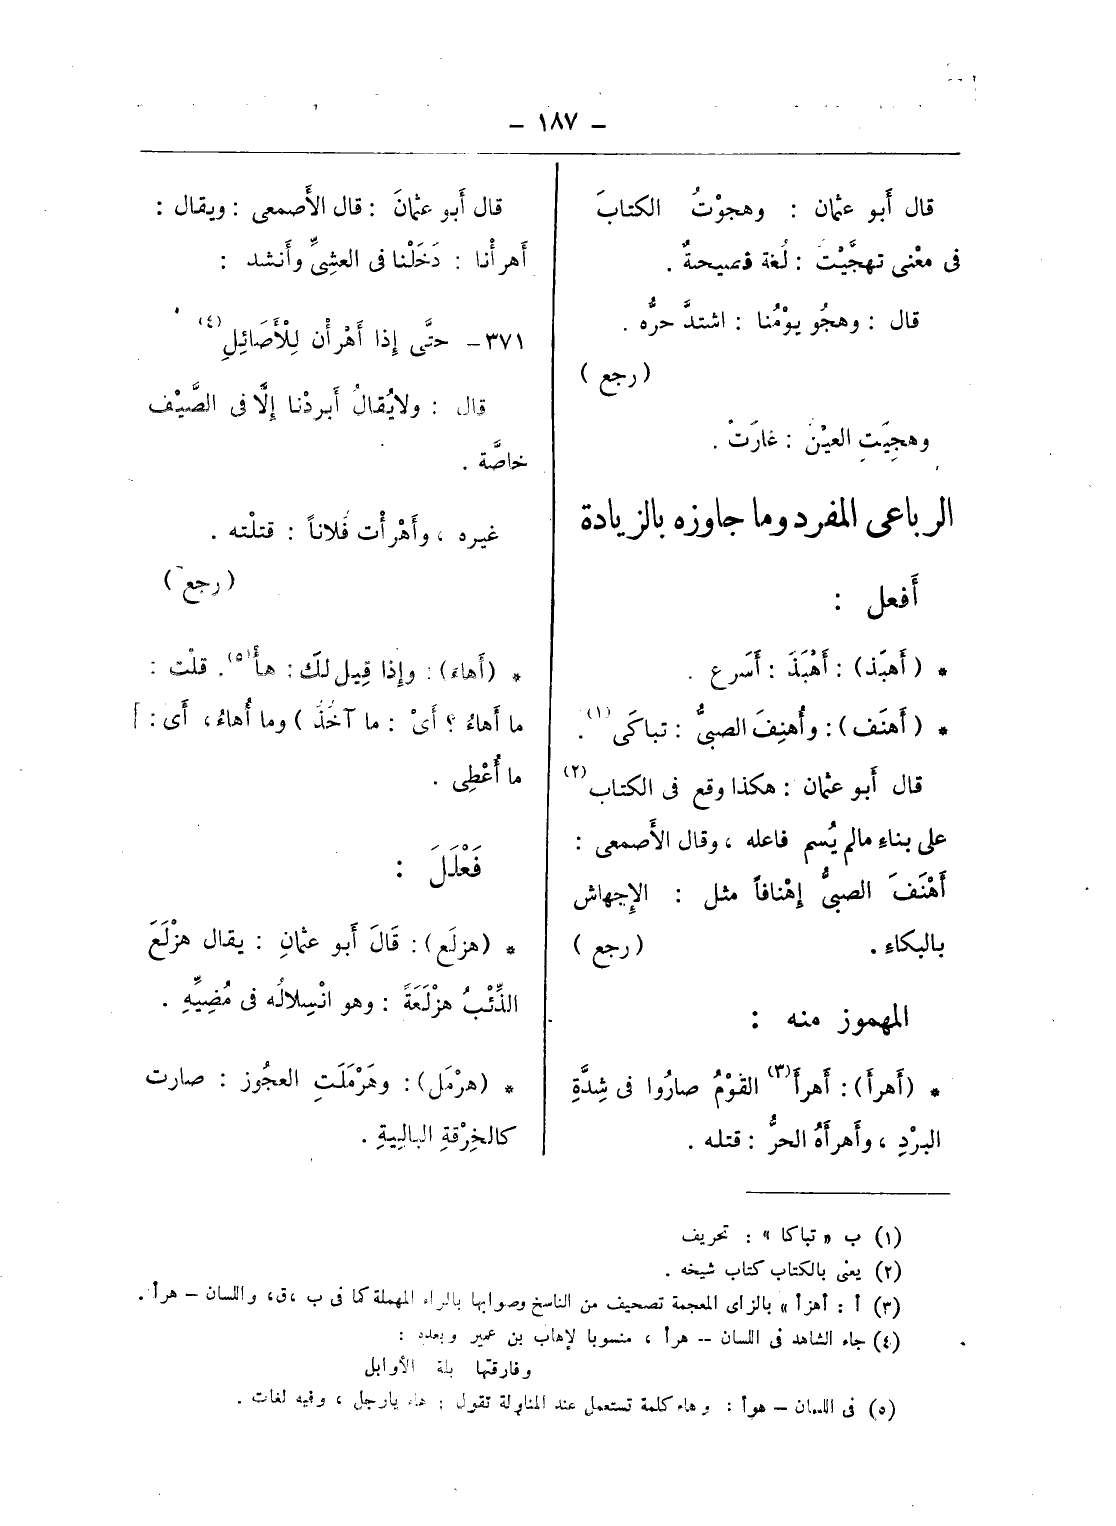 – ١٨٧ –
قال أَبو عثمان : وهجوْتُ الكتابَ
فى معْنى تهجَّيْت : لُغة فصيحةٌ .
قال : وهجُو يوْمُنا : اشتدَّ حرُّه .
( رجع )
وهجِيَتِ العيْنُ : غارَتْ .
الرباعى المفرد وما جاوزه بالزيادة
أَفعل :
* ( أَهبَذ ) : أَهْبَذَ : أَسَرع .
* ( أَهنَف ) : وأُهنِفَ الصبىُّ : تباكَى (١) .
قال أَبو عثمان : هكذا وقع فى الكتاب (٢)
على بناءِ مالم يُسم فاعله ، وقال الأَصمعى :
أَهْنَفَ الصبىُّ إِهْنافاً مثل : الإِجهاش
بالبكاءِ . ( رجع )
المهموز منه :
* (أَهرأَ) : أَهرأَ (٣) القوْمُ صارُوا فى شِدَّةِ
البرْدِ ، وأَهرأَهُ الحرُّ : قتله .
قال أَبو عثمانَ : قال الأَصمعى : ويقال :
أَهرأْنا : دَخَلْنا فى العشِىِّ وأَنشد :
٣٧١ – حتَّى إِذا أَهْرأْن لِلْأَصَائِلِ (٤)
قال : ولايُقالُ أَبردْنا إِلَّا فى الصَّيْف
خاصَّة .
غيره ، وأَهْرأْت فُلاناً : قتلْته .
( رجع )
* (أَهاءَ) : وإِذا قِيل لكَ : هأَ (٥) . قلْت :
ما أَهاءُ ؟ أَىْ : ما آخُذُ ) وما أُهاءُ ، أَى : [
ما أُعْطِى .
فَعْلَلَ :
* (هزلَع) : قَالَ أَبو عثمانِ : يقال هزْلَعَ
الذِّئْبُ هزْلَعَةً : وهو انْسِلالُه فى مُضِيِّهِ .
* (هرْمَل) : وهَرْمَلَتِ العجُوز : صارت
كالخِرْقةِ البالِيةِ .
(١) ب « تباكا » : تحريف
(٢) يعنى بالكتاب كتاب شيخه .
(٣) أ : أهزأ » بالزاى المعجمة تصحيف من الناسخ وصوابها بالراء المهملة كما فى ب ،ق، واللسان – هرأ .
(٤) جاء الشاهد فى اللسان – هرأ ، منسوبا لإهاب بن عمير وبعده :
وفارقتها بلة الأوابل
(٥) فى اللسان – هوأ : وهاء كلمة تستعمل عند المناولة تقول : هاء يارجل ، وفيه لغات .